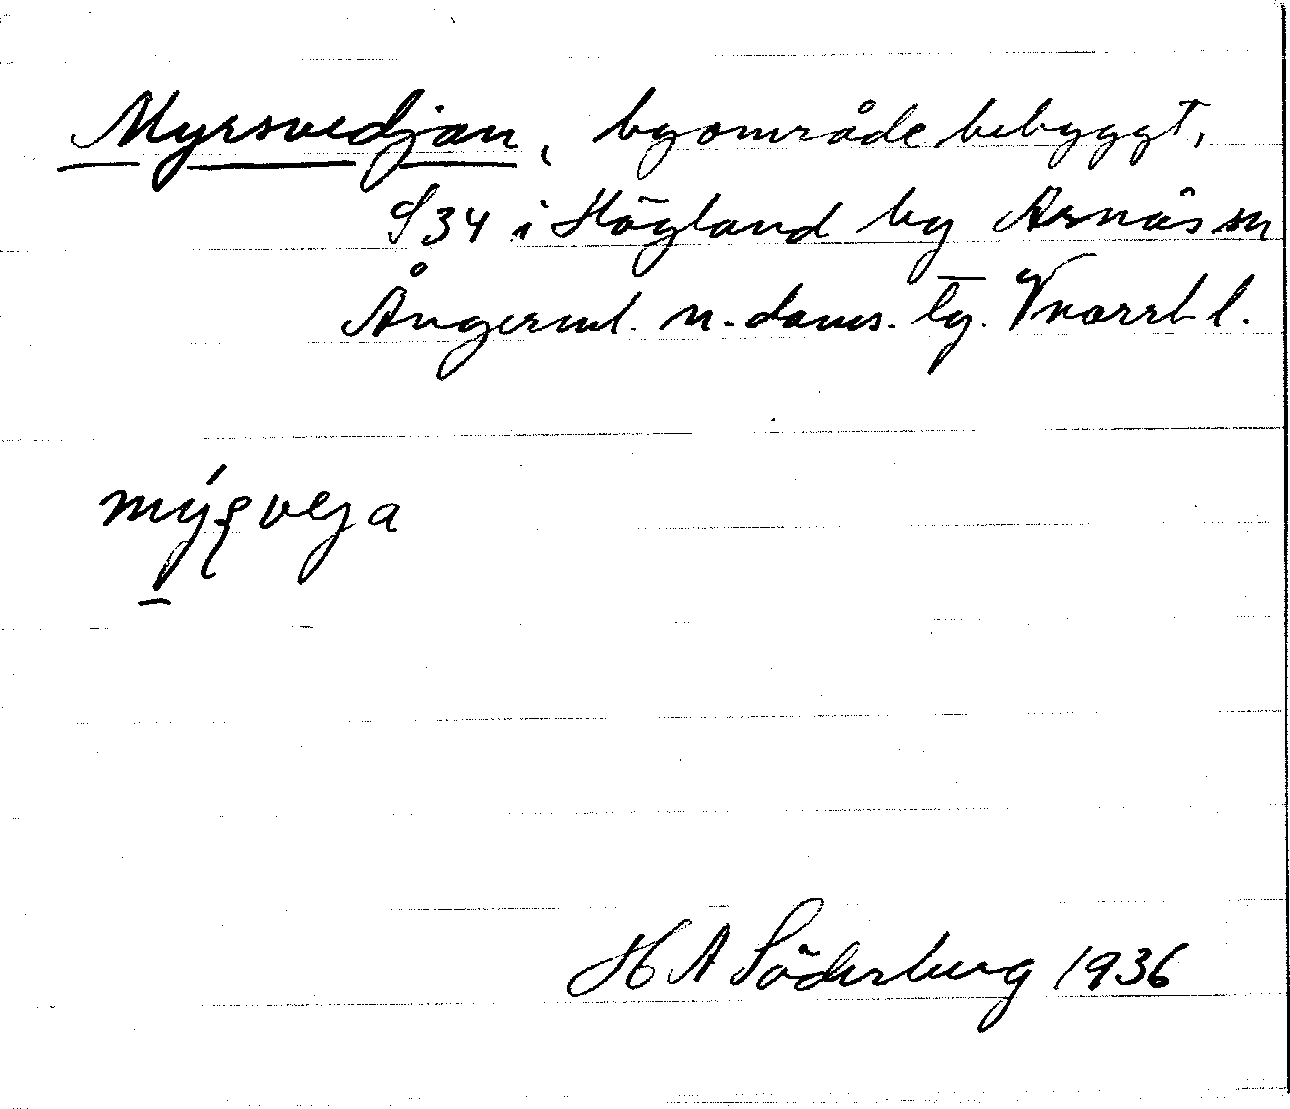 Myrsvedjan, byområde bebyggt,
S34 i Högland by Arnäs sn
Ångerml. n. doms. tg. Västerrl l.
mýʂveja
H A Söderberg 1936